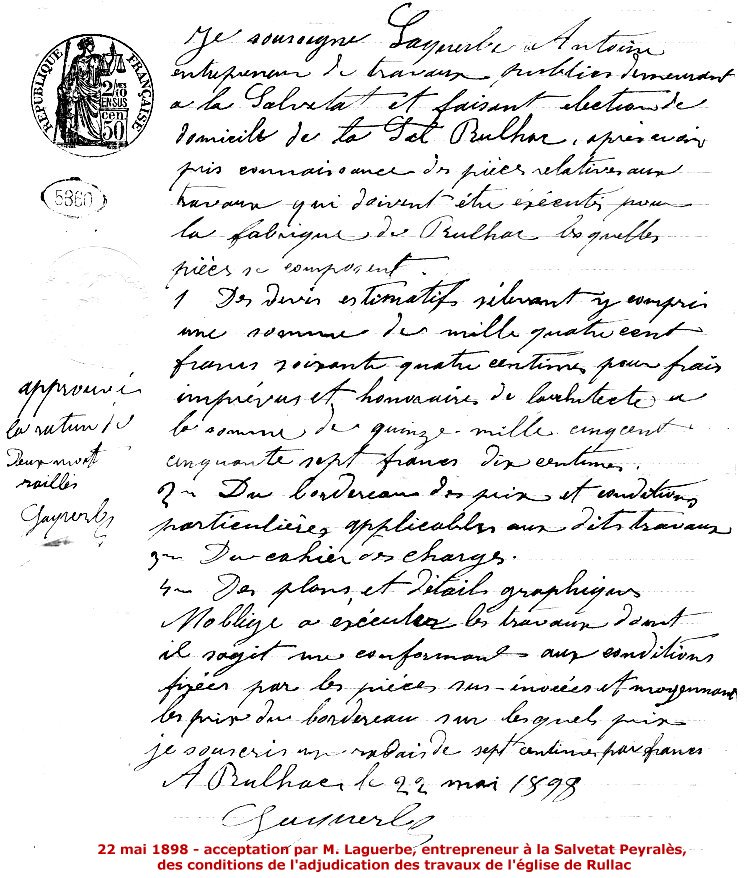 RÉPUBLIQUE FRANÇAISE
2/10mes
EN SUS
50 cen
5860
Je soussigné Laguerbe Antoine
entrepreneur de travaux publics demeurant
a la Salvetat et faisant election de
domicile de la Sal Rulhac, après avoir
pris connaissance des pièces relatives aux
travaux qui doivent être exécutés pour
la fabrique de Rulhac lesquelles
pièces se composent.
1 Des devis estimatifs sélevant y compris
une somme de mille quatre cent
francs soixante quatre centimes pour frais
imprévus et honoraires de larchitecte a
la somme de quinze mille cinqcent
cinquante sept francs dix centimes.
2n Du bordereau des prix et conditions
particulières applicables aux dits travaux
3n Du cahier des charges.
4n Des plans et détails graphiques
Mobblige a exécuter les travaux dont
il sagit me conformant aux conditions
fixées par les pièces sus-invocées et moyennant
les prix du bordereau sur lesquels prix
je souscris un rabais de sept centimes par francs
A Rulhac le 22 mai 1898
Laguerbe
approuvé
la rature de
Deux mots
railles
Laguerbe
22 mai 1898 - acceptation par M. Laguerbe, entrepreneur à la Salvetat Peyralès,
des conditions de l'adjudication des travaux de l'église de Rullac